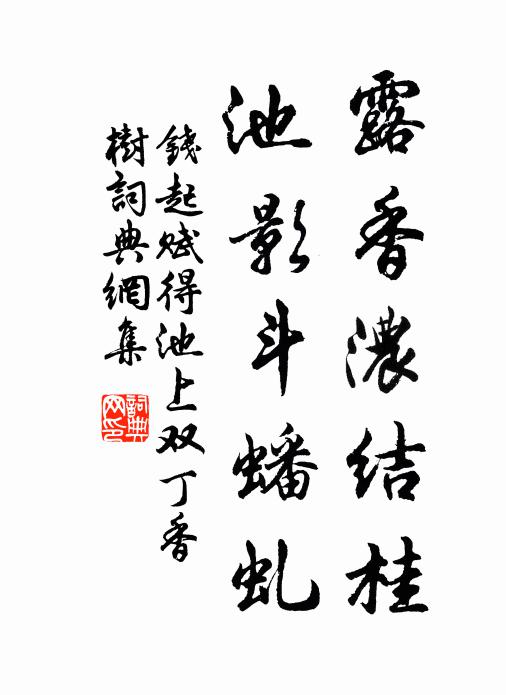 露香濃結桂
池影斗蟠虬
錢起賦得池上双丁香
樹詞典網集
詞典網印